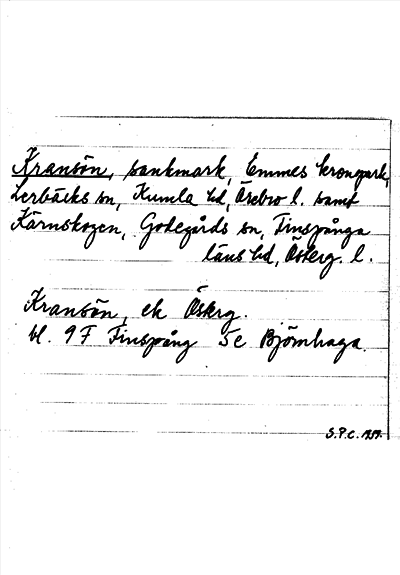 Kransön, sankmark, Emmes kronopark,
Lerbäcks sn, Kumla hd, Örebro l. samt
Kärnskogen, Godegårds sn, Finspånga
läns hd, Österg. l.
Kransön, ek Österg.
bl. 9F Finspång 5c Björnhaga.
S.P.C. 1959.